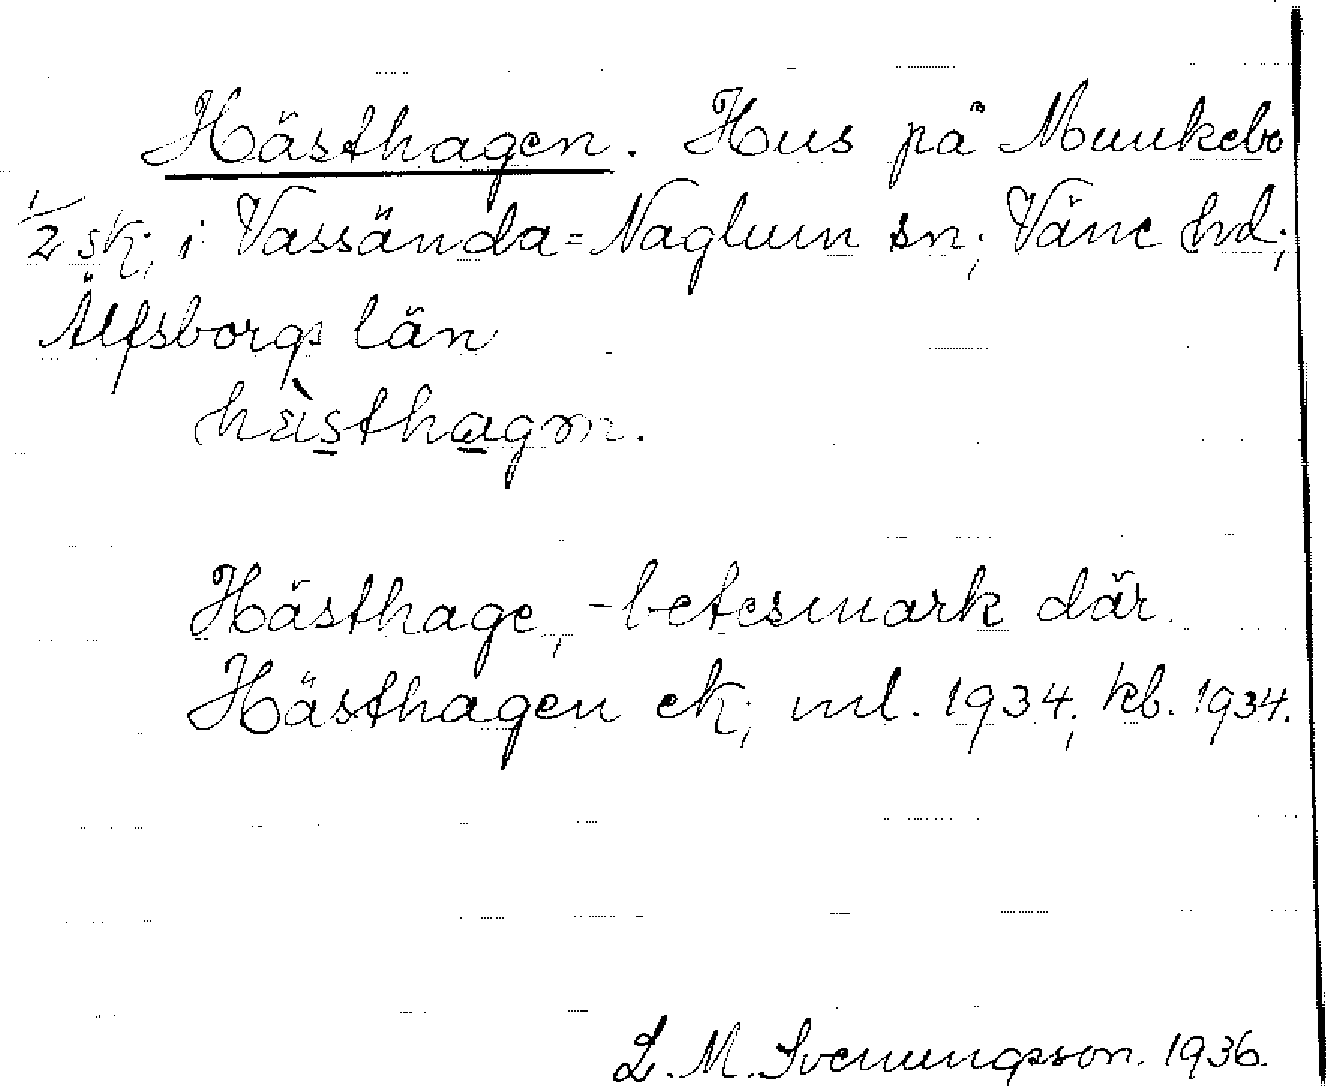 Hästhagen. Hus på Munkebo
1/2 sk; i Vassända=Naglum sn; Väne hd;
Älfsborgs län
hὲsthagɷn.
Hästhage, -betesmark där.
Hästhagen ek; ml. 1934; kb. 1934.
L. M. Svenungsson. 1936.